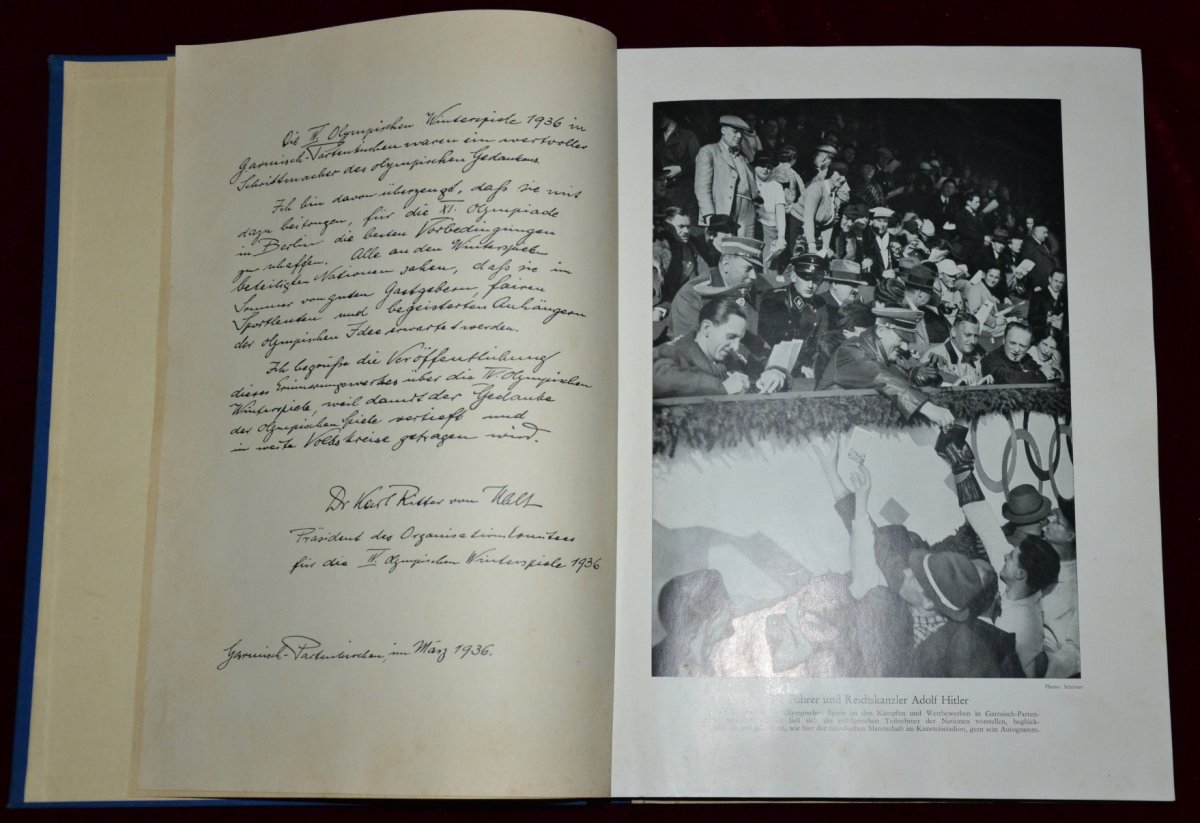 Die IV. Olympischen Winterspiele 1936 in
Garmisch-Partenkirchen waren ein wertvoller
Schrittmacher des olympischen Gedankens.
Ich bin davon überzeugt, daß sie mit
dazu beitragen, für die XI. Olympiade
in Berlin die besten Vorbedingungen
zu schaffen. Alle an den Winterspielen
beteiligten Nationen sahen, daß sie im
Sommer von guten Gastgebern, fairen
Sportleuten und begeisterten Anhängern
der olympischen Idee erwartet werden.
Ich begrüße die Veröffentlichung
dieses Erinnerungswerkes über die IV. Olympischen
Winterspiele, weil damit der Gedanke
der Olympischen Spiele vertieft und
in weite Volkskreise getragen wird.
Dr Karl Ritter von Halt
Präsident des Organisationskomitees
für die IV. Olympischen Winterspiele 1936
Garmisch-Partenkirchen, im März 1936.
Photo: Schirner
Führer und Reichskanzler Adolf Hitler
Olympischen Spiele an den Kämpfen und Wettbewerben in Garmisch-Parten-
ließ sich die erfolgreichen Teilnehmer der Nationen vorstellen, beglück-
wie hier der Mannschaft im Kunsteisstadion, gern sein Autogramm.